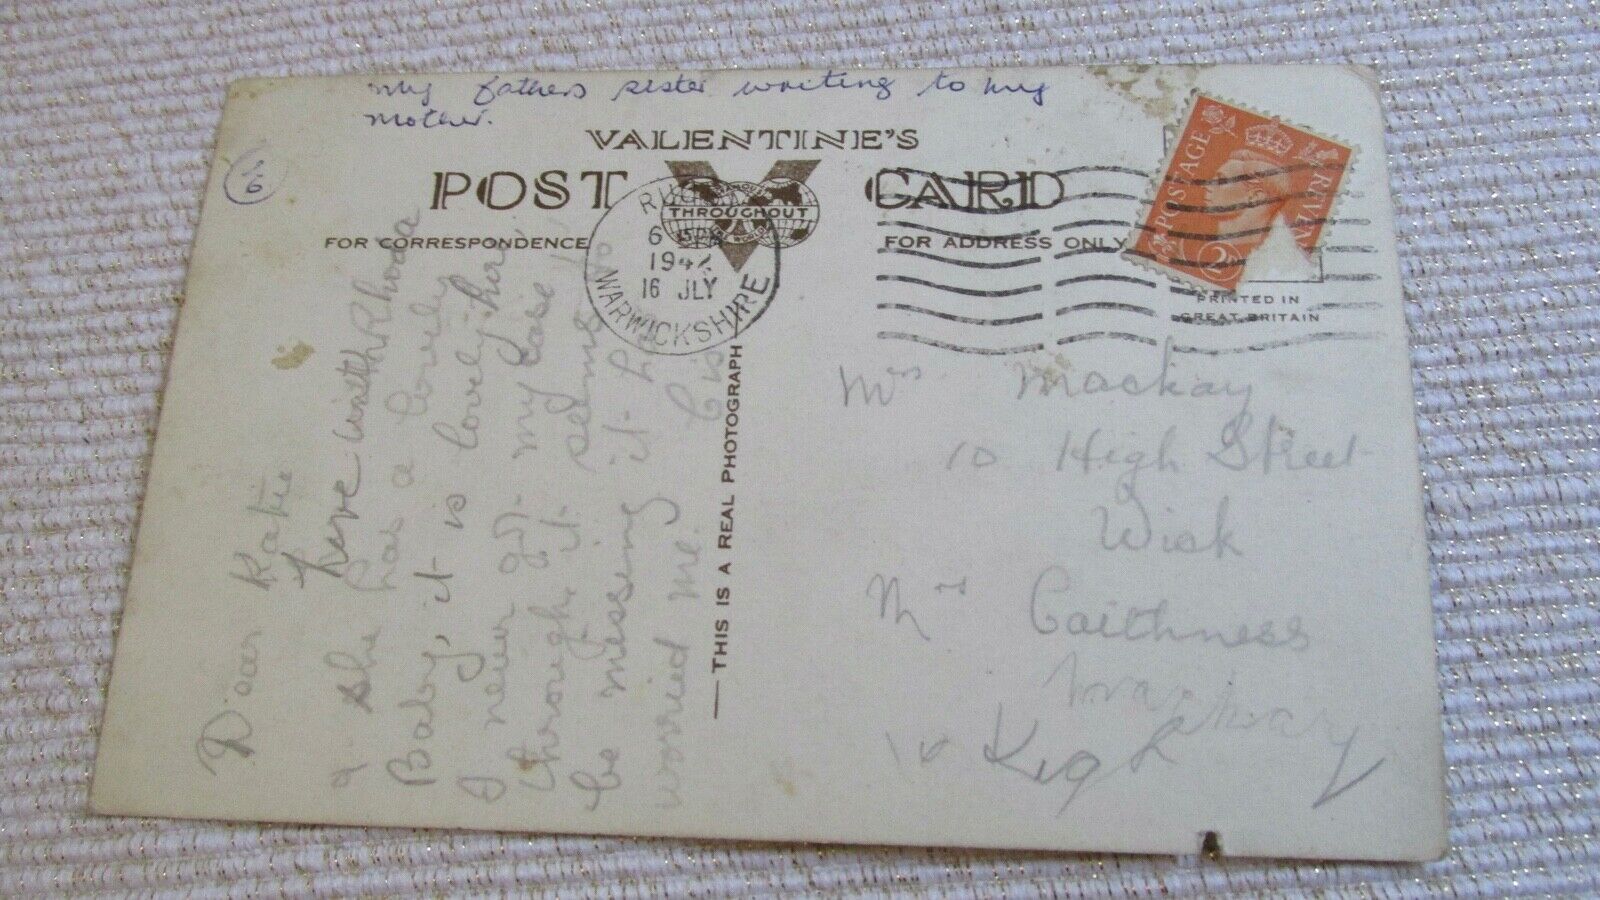 My fathers sister writing to my
mother.
VALENTINE'S
POST CARD
THROUGHOUT
FOR CORRESPONDENCE
FOR ADDRESS ONLY
6
194
16 JLY
WARWICKSHIRE
POSTAGE REVEN
2
PRINTED IN
GREAT BRITAIN
THIS IS A REAL PHOTOGRAPH
Dear Katie
here with Rhoda
& she has a lovely
Baby, it is lovely here
I never got my case
through, it seems to
be missing it
worried me.
Mrs Mackay
10 High Street
Wick
Caithness
10 High